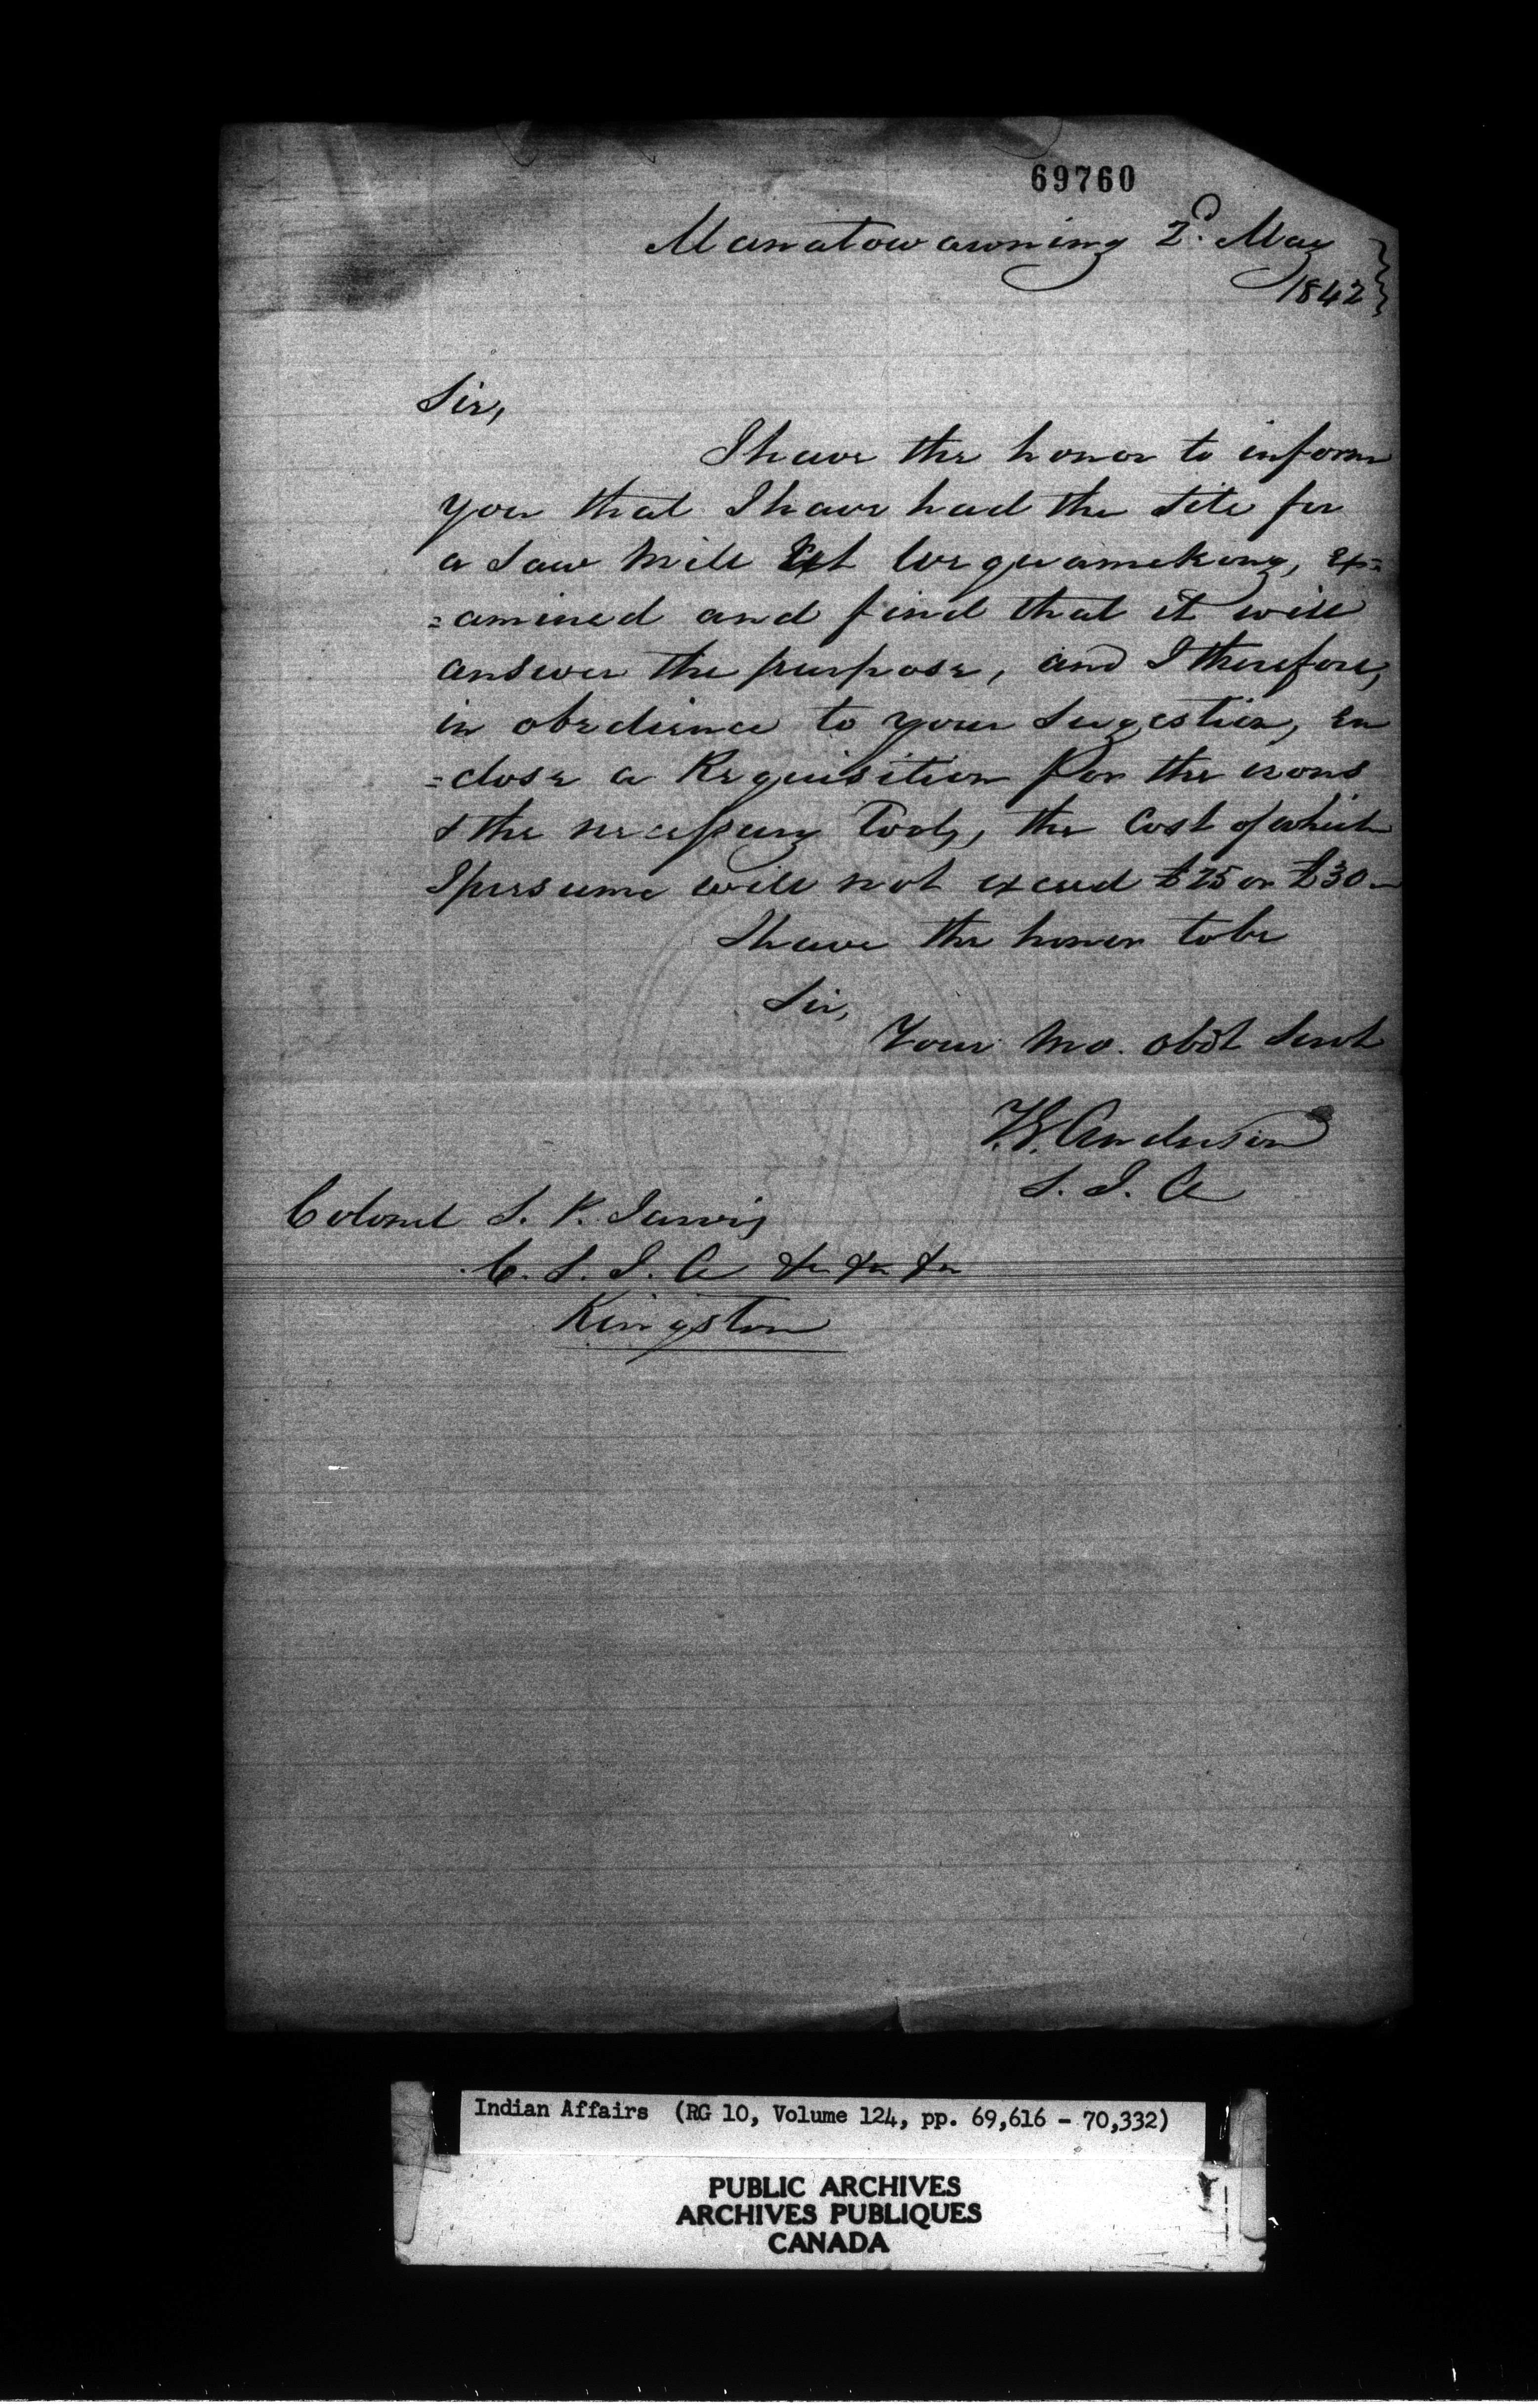 69760
Manatowawning 2d. May
1842
Sir,
I have the honor to inform
you that I have had the Site for
a Saw Mill at Wequamekong, ex=
=amined and find that it will
answer the purpose, and I therefore,
in obedience to your Sugestion, en
=close a Requisition for the irons
& the necessary Tools, the Cost of which
I persume will not exceed £25 or £30—
I have the honor to be
Sir,
Your Mo. obdt Servt
T.G. Anderson
S. I. A
Colonel S. P. Jarvis
C. S. I. A &c &c &c
Kingston
Indian Affairs (RG 10, Volume 124, pp. 69,616 - 70,332)
PUBLIC ARCHIVES
ARCHIVES PUBLIQUES
CANADA